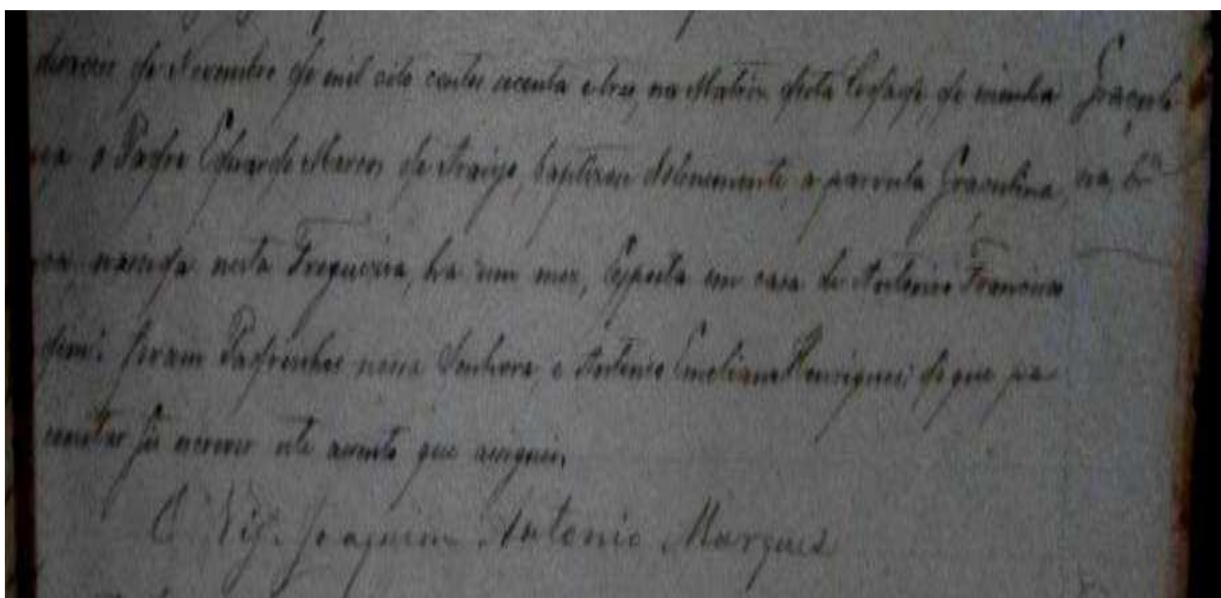 de Novembro de mil oito centos secenta e tres, na Matriz desta Cidade, de minha
o Padre Eduardo Marcos de Araujo, baptizou solenemente a parvula Graculina,
nascida nesta Freguezia, ha um mez, Exposta em casa de Antonio Francisco
foram Padrinhos nossa Senhora, e Antonio Emeliano Henriques; de que pa
constar fiz escrever este acento que assignei,
O Vigr. Joaquim Antonio Marques